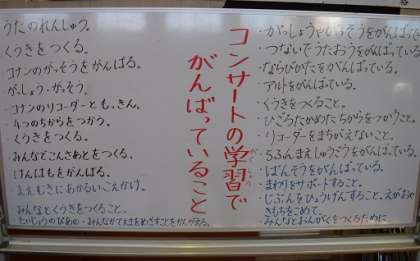 コンサートの学習で
がんばっていること
うたのれんしゅう。
くうきをつくる。
コナンのがっそうをがんばる。
がっしょう・がっそう。
・コナンのリコーダーともっきん。
・4つのちからをつかう。
くうきをつくる。
・みんなでこんさあとをつくる。
けんばもをがんばる。
みんなとくうきをつくること。
・がっしょうやがっそうをがんばって
・つないでうたおうをがんばっている。
・ならびかたをがんばっている。
・アルトをがんばっている。
・くうきをつくること。
・ひごろためたちからをつかうこと。
・リコーダーをまちがえないこと。
・ちふんまえしゅうごうをがんばっている。
・ばんそうをがんばっている。
・まわりをサポートすること。
・じぶんをひょうげんすること。えがおや
きもちをこめて。
みんなとおんがくをつくるために